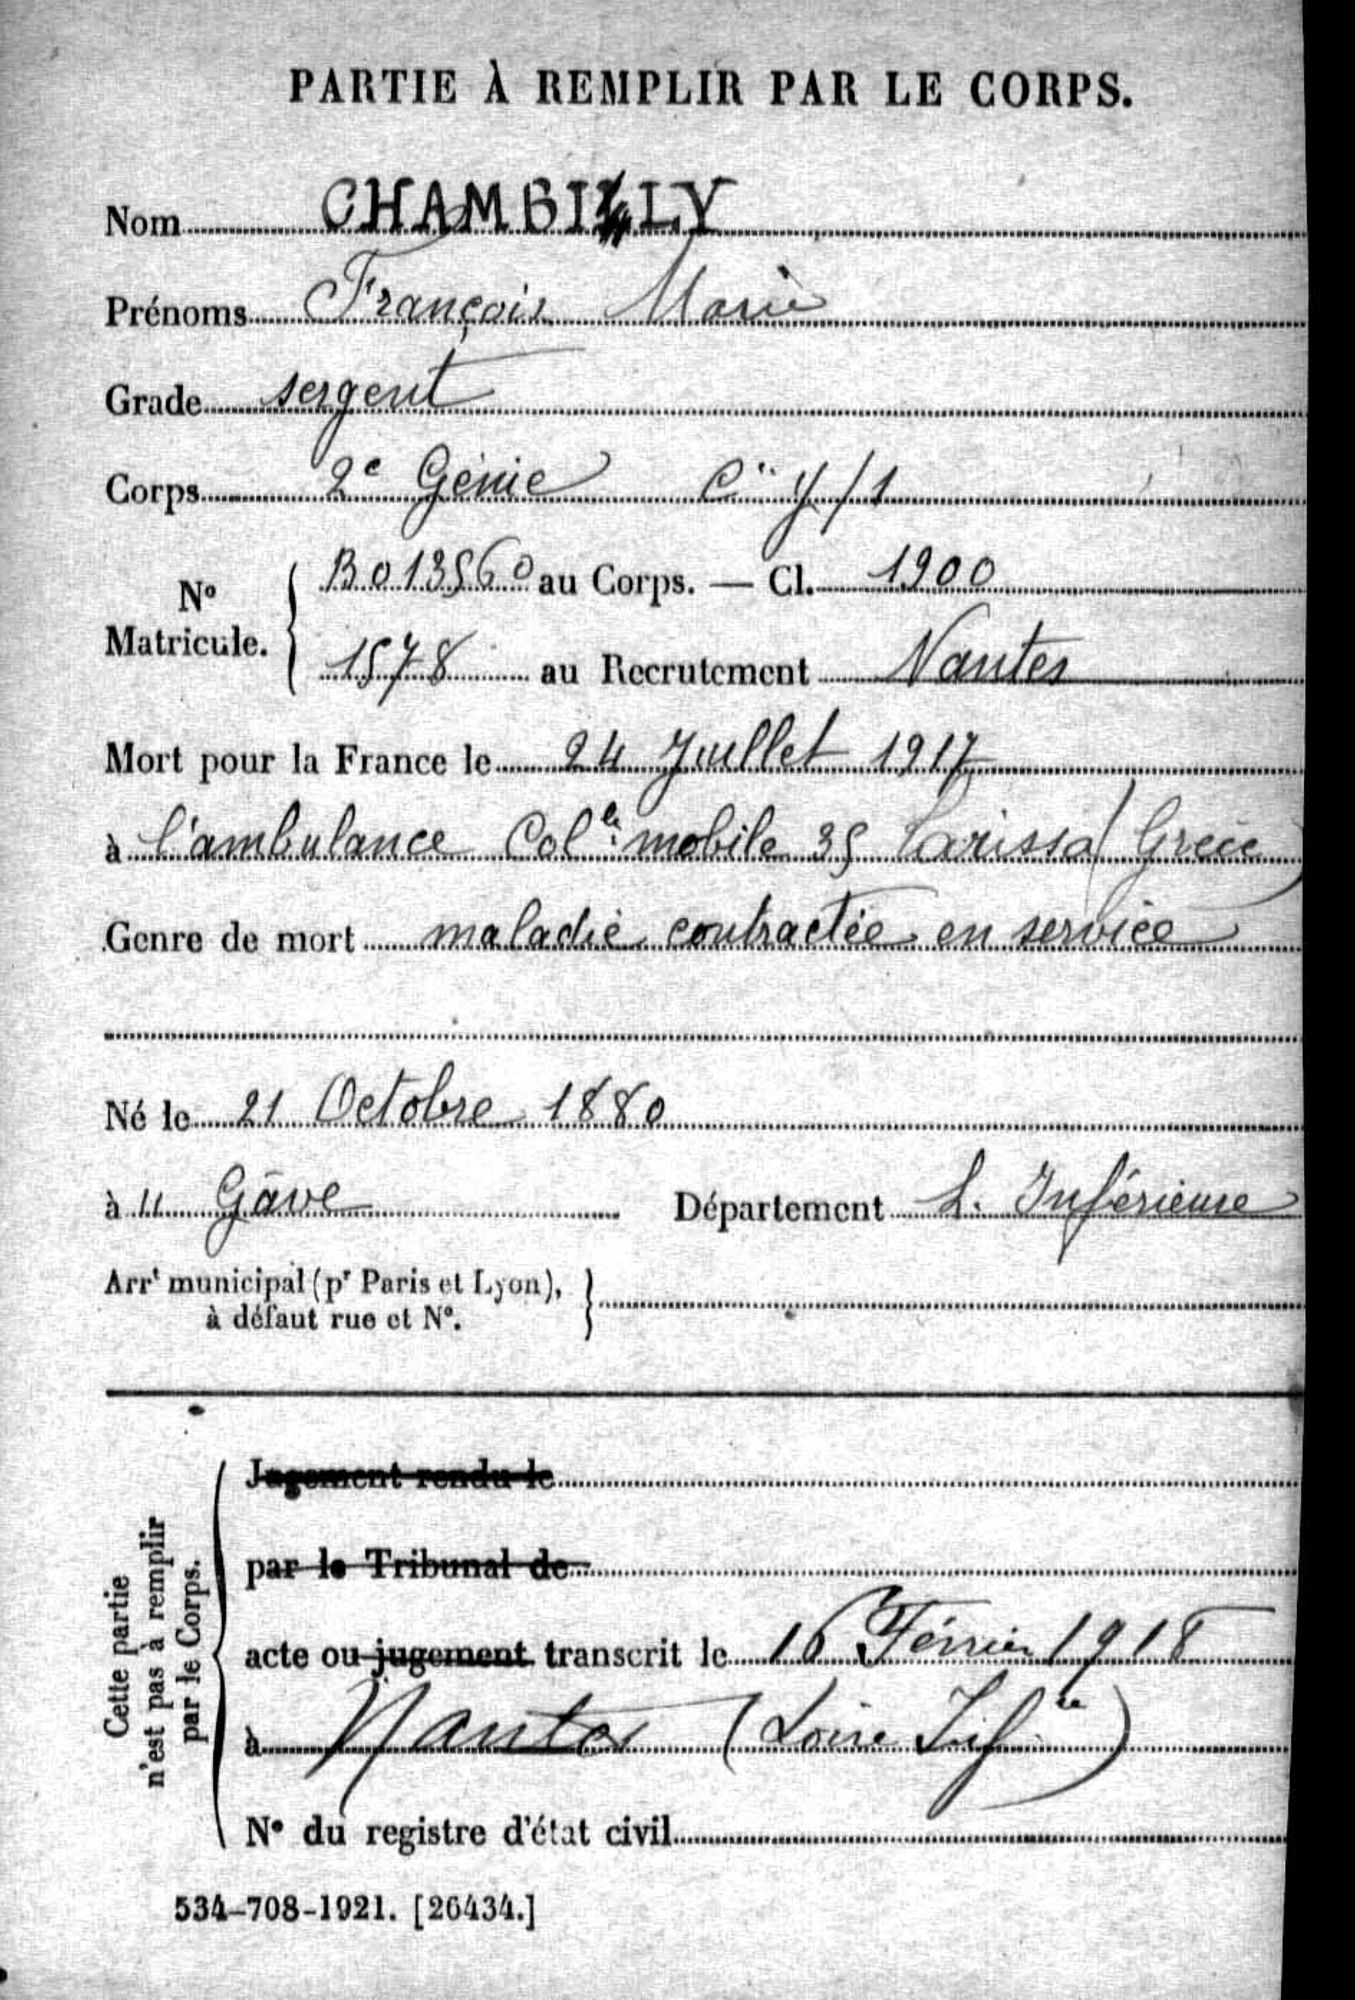 PARTIE À REMPLIR PAR LE CORPS.
Nom CHAMBILLY
Prénoms François Marie
Grade sergent
Corps 2e Génie Cie 4/1
No Matricule. B013560 au Corps. — Cl. 1900
1578 au Recrutement Nantes
Mort pour la France le 24 Juillet 1917
à l'ambulance Colle mobile 35 Larissa (Grèce)
Genre de mort maladie contractée en service
Né le 21 Octobre 1880
à Gâvre Département L. Inférieure
Arrt municipal (pr Paris et Lyon),
à défaut rue et No.
Cette partie n'est pas à remplir par le Corps.
Jugement rendu le
par le Tribunal de
acte ou jugement transcrit le 16 Février 1918
à Nantes (Loire Infre)
No du registre d'état civil
534-708-1921. [26434.]